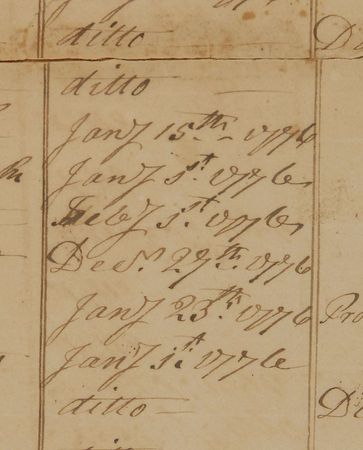 ditto
ditto
Jany 15th 1776
Jany 1st 1776
Feby 1st 1776
Decr 27th 1776
Jany 23th 1776 Pro
Jany 1st 1776
ditto De